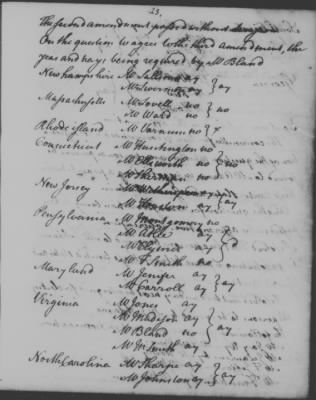 23.
The second amendment passed without
On the question to agree to the third amendment, the
yeas and nays being required by Mr Bland
New hampshire Mr Sullivan ay
Mr Livermore ay } ay
Massachusetts Mr Lovell no
Mr Ward no } no
Rhode island Mr Varnum no } x
Connecticut Mr Huntington no
Mr Ellsworth no } no
Mr Sherman no
New Jersey Mr Witherspoon ay
Mr Houston ay } ay
Pensylvania Mr Montgomery no
Mr Atlee ay
Mr Clymer ay } d
Mr T Smith no
Maryland Mr Jenifer ay
Mr Carroll ay } ay
Virginia Mr Jones ay
Mr Madison ay
Mr Bland no } ay
Mr M Smith ay
North Carolina Mr Sharpe ay
Mr Johnston ay } ay